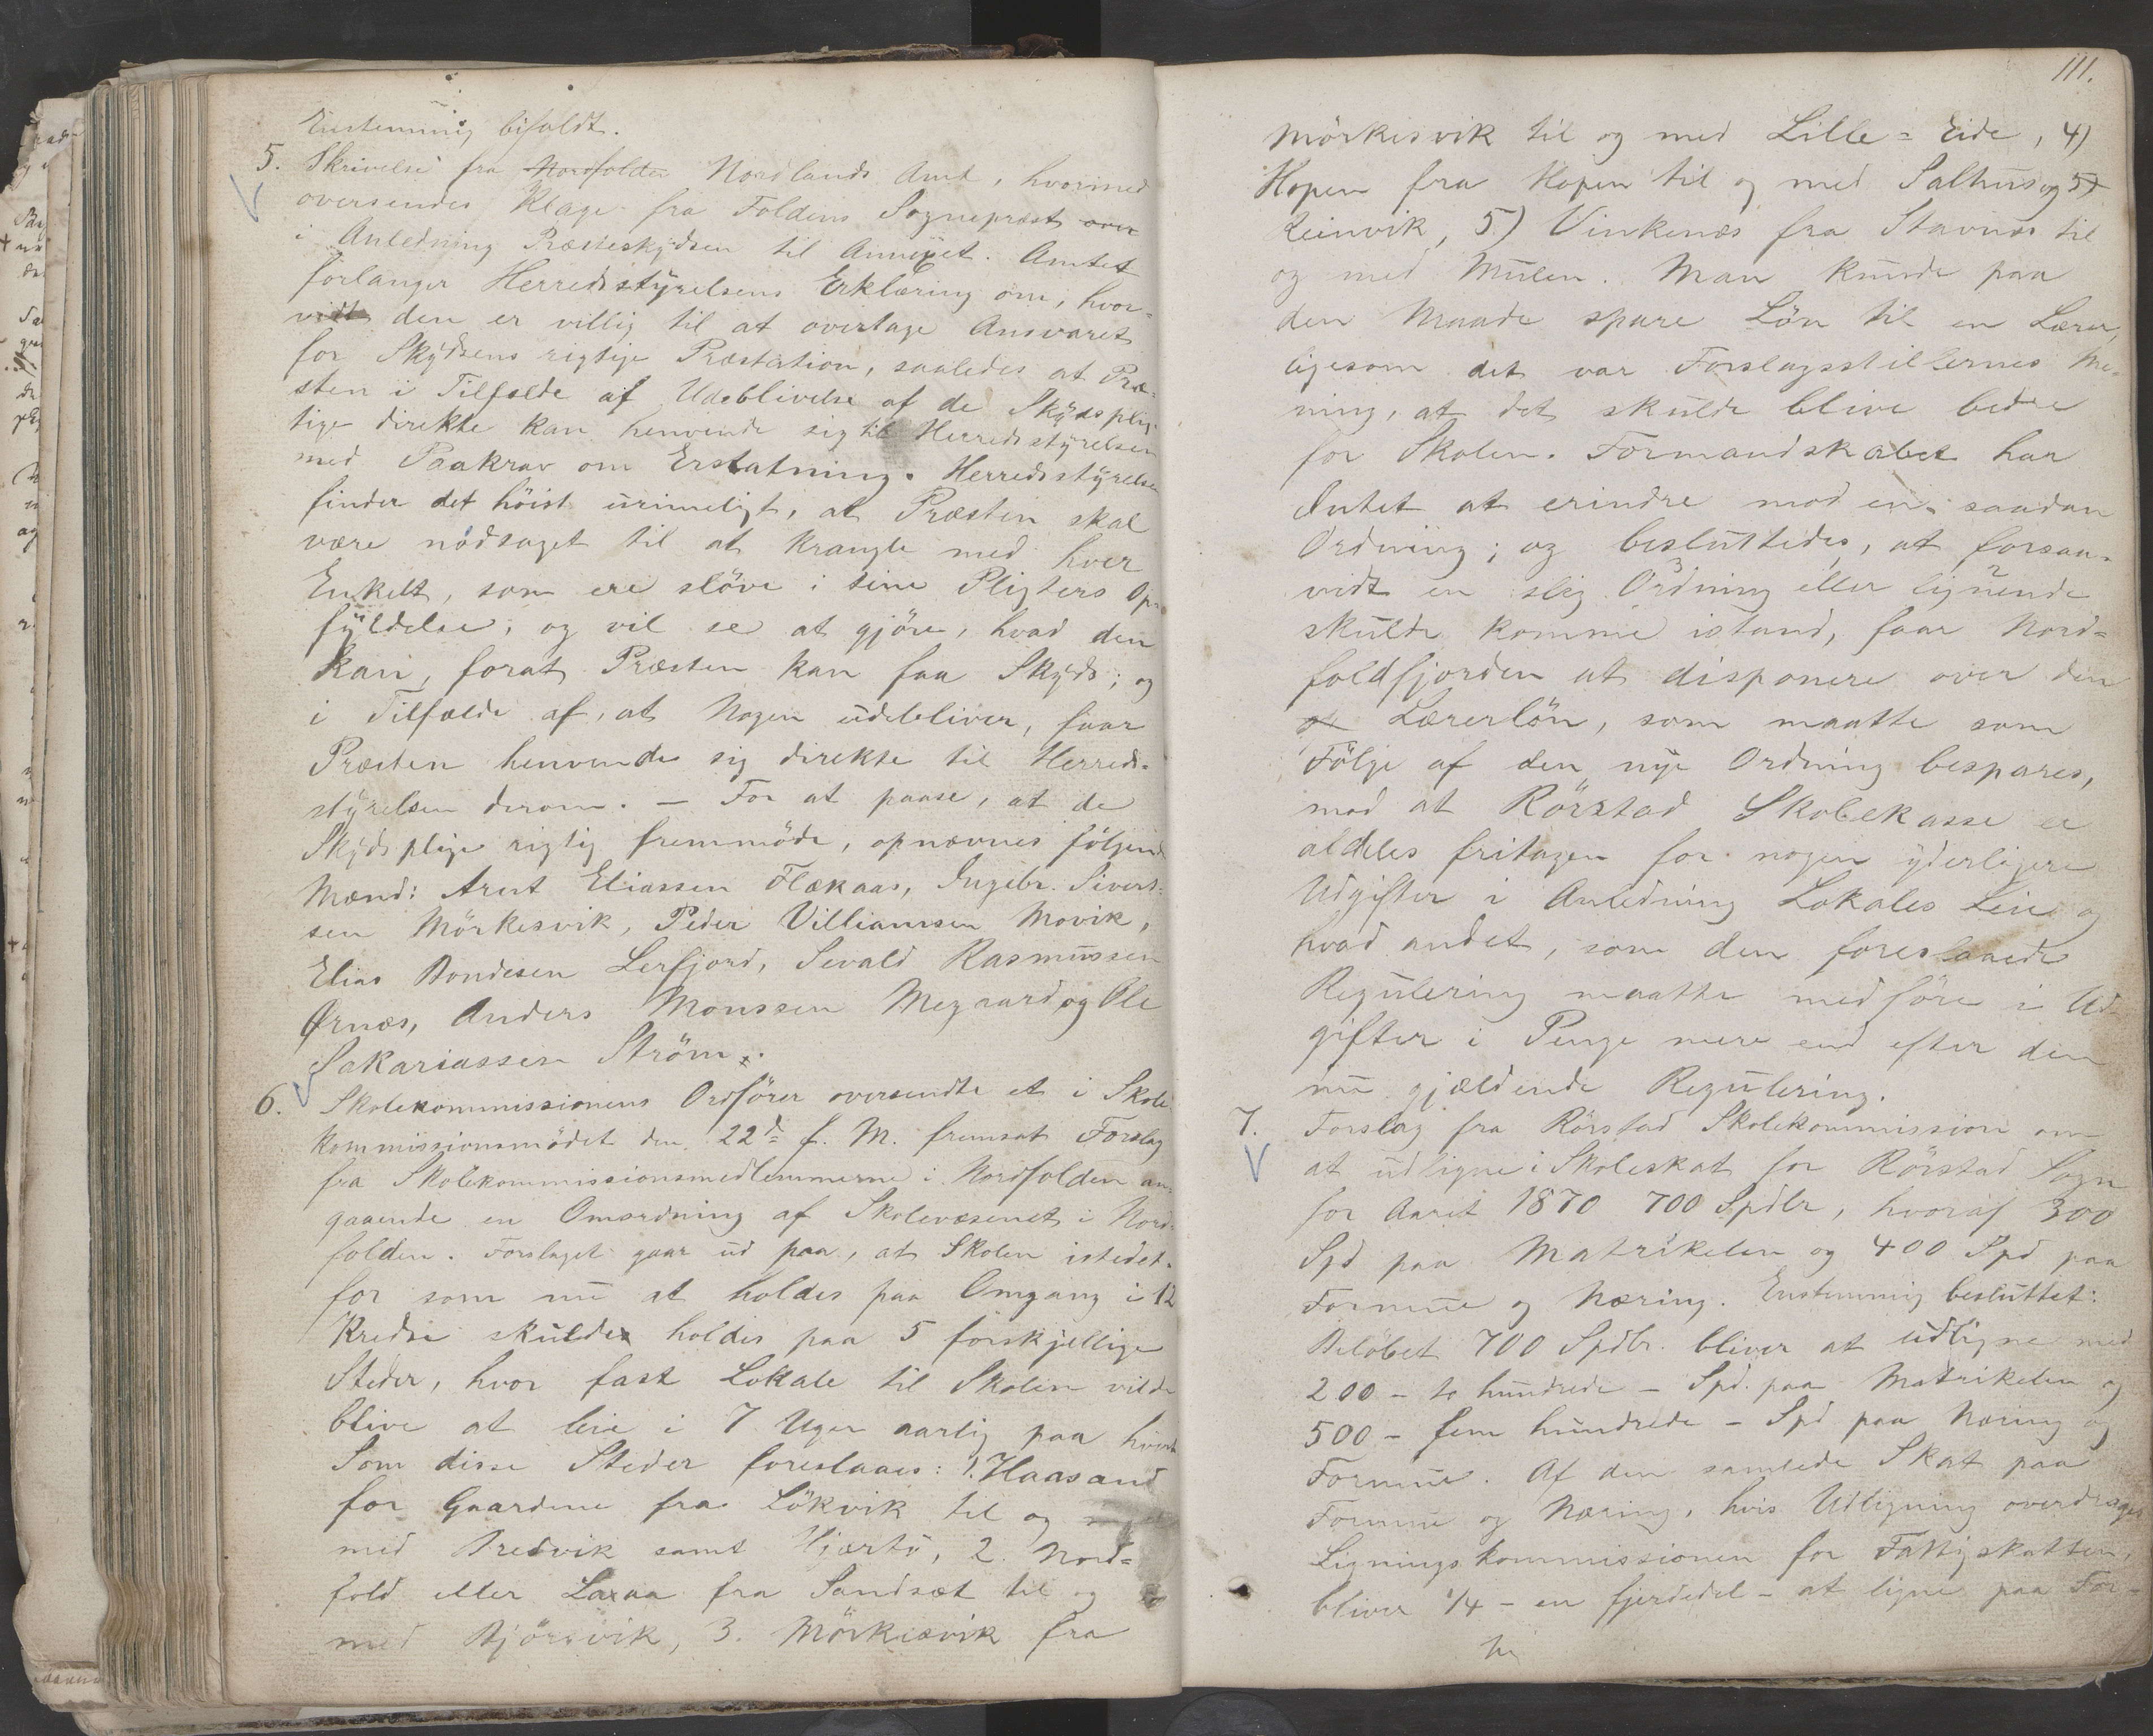 Enstemmig bifaldt.
5. Skrivelse fra Nordfolden Nordlands Amt, hvormed
oversendes Klage fra Foldens Sognepræst over
i Anledning Præsteskydsen til Annexet. Amtet
forlanger Herredsstyrelsens Erklæring om, hvor-
vidt den er villig til at overtage Ansvaret
for Skydsens rigtige Præstation, saaledes at Præ-
sten i Tilfælde af Udeblivelse af de Skydsplig-
tige direkte kan henvende sig til Herredsstyrelsen
med Paakrav om Erstatning. Herredsstyrelsen
finder det höist urimeligt, at Præsten skal
være nödsaget til at krangle med hver
Enkelt, som ere slöve i sine Pligters Op-
fyldelse; og vil se at gjöre, hvad den
kan, forat Præsten kan faa Skyds; og
i Tilfælde af, at Nogen udebliver, faar
Præsten henvende sig direkte til Herreds-
styrelsen derom. — For at paase, at de
Skydspligtige rigtig fremmöde, opnævnes fölgende
Mænd: Arnt Eliassen Flækaas, Ingebr. Sivert-
sen Mörkesvik, Peder Villiamsen Movik,
Elias Bondesen Lerfjord, Sevald Rasmussen
Ørnæs, Anders Monssen Megaard og Ole
Sakariassen Ström.
6. Skolekommissionens Ordförer oversendte et i Skole-
kommissionsmödet den 22d f. M. fremsat Forslag
fra Skolekommissionsmedlemmerne i Nordfolden an-
gaaende en Omordning af Skolevæsenet i Nord-
folden. Forslaget gaar ud paa, at Skolen istedet-
for som nu at holdes paa Omgang i 12
Kredse skulde holdes paa 5 forskjellige
Steder, hvor fast Lokale til Skolen vilde
blive at leie i 7 Uger aarlig paa hvert
Som disse Steder foreslaaes: 1. Haasand
for Gaardene fra Lökvik til og
med Bredvik samt Hjærtö, 2. Nord-
fold eller Laxaa fra Sandsæt til og
med Björsvik, 3. Mörkesvik fra
111.
Mörkesvik til og med Lille-Eide, 4)
Hopen fra Hopen til og med Salhus og 5)
Reinvik, 5) Vinkenæs fra Stavnæs til
og med Mulen. Man kunde paa
den Maade spare Lön til en Lærer,
ligesom det var Forslagsstillernes Me-
ning, at det skulde blive bedre
for Skolen. Formandskabet har
Intet at erindre mod en saadan
Ordning; og besluttedes, at forsaa-
vidt en slig Ordning eller lignende
skulde komme istand, faar Nord-
foldfjorden at disponere over den
Lærerlön, som maatte som
Fölge af den nye Ordning bespares,
mod at Rörstad Skolekasse er
aldeles fritagen for nogen yderligere
Udgifter i Anledning Lokales Leie og
hvad andet, som den foreslaaede
Regulering maatte medföre i Ud-
gifter i Penge mere end efter den
nu gjældende Regulering.
7. Forslag fra Rörstad Skolekommission om
at udligne i Skoleskat for Rörstad Sogn
for Aaret 1870 700 Spdlr, hvoraf 300
Spd paa Matrikelen og 400 Spd paa
Formue og Næring. Enstemmig besluttet:
Belöbet 700 Spdlr. bliver at udligne med
200 - to hundrede - Spd. paa Matrikelen og
500 - fem hundrede - Spd paa Næring og
Formue. Af den samlede Skat paa
Formue og Næring, hvis Udligning overdrages
Ligningskommissionen for Fattigskatten,
bliver 1/4 - en fjerdedel - at ligne paa For-